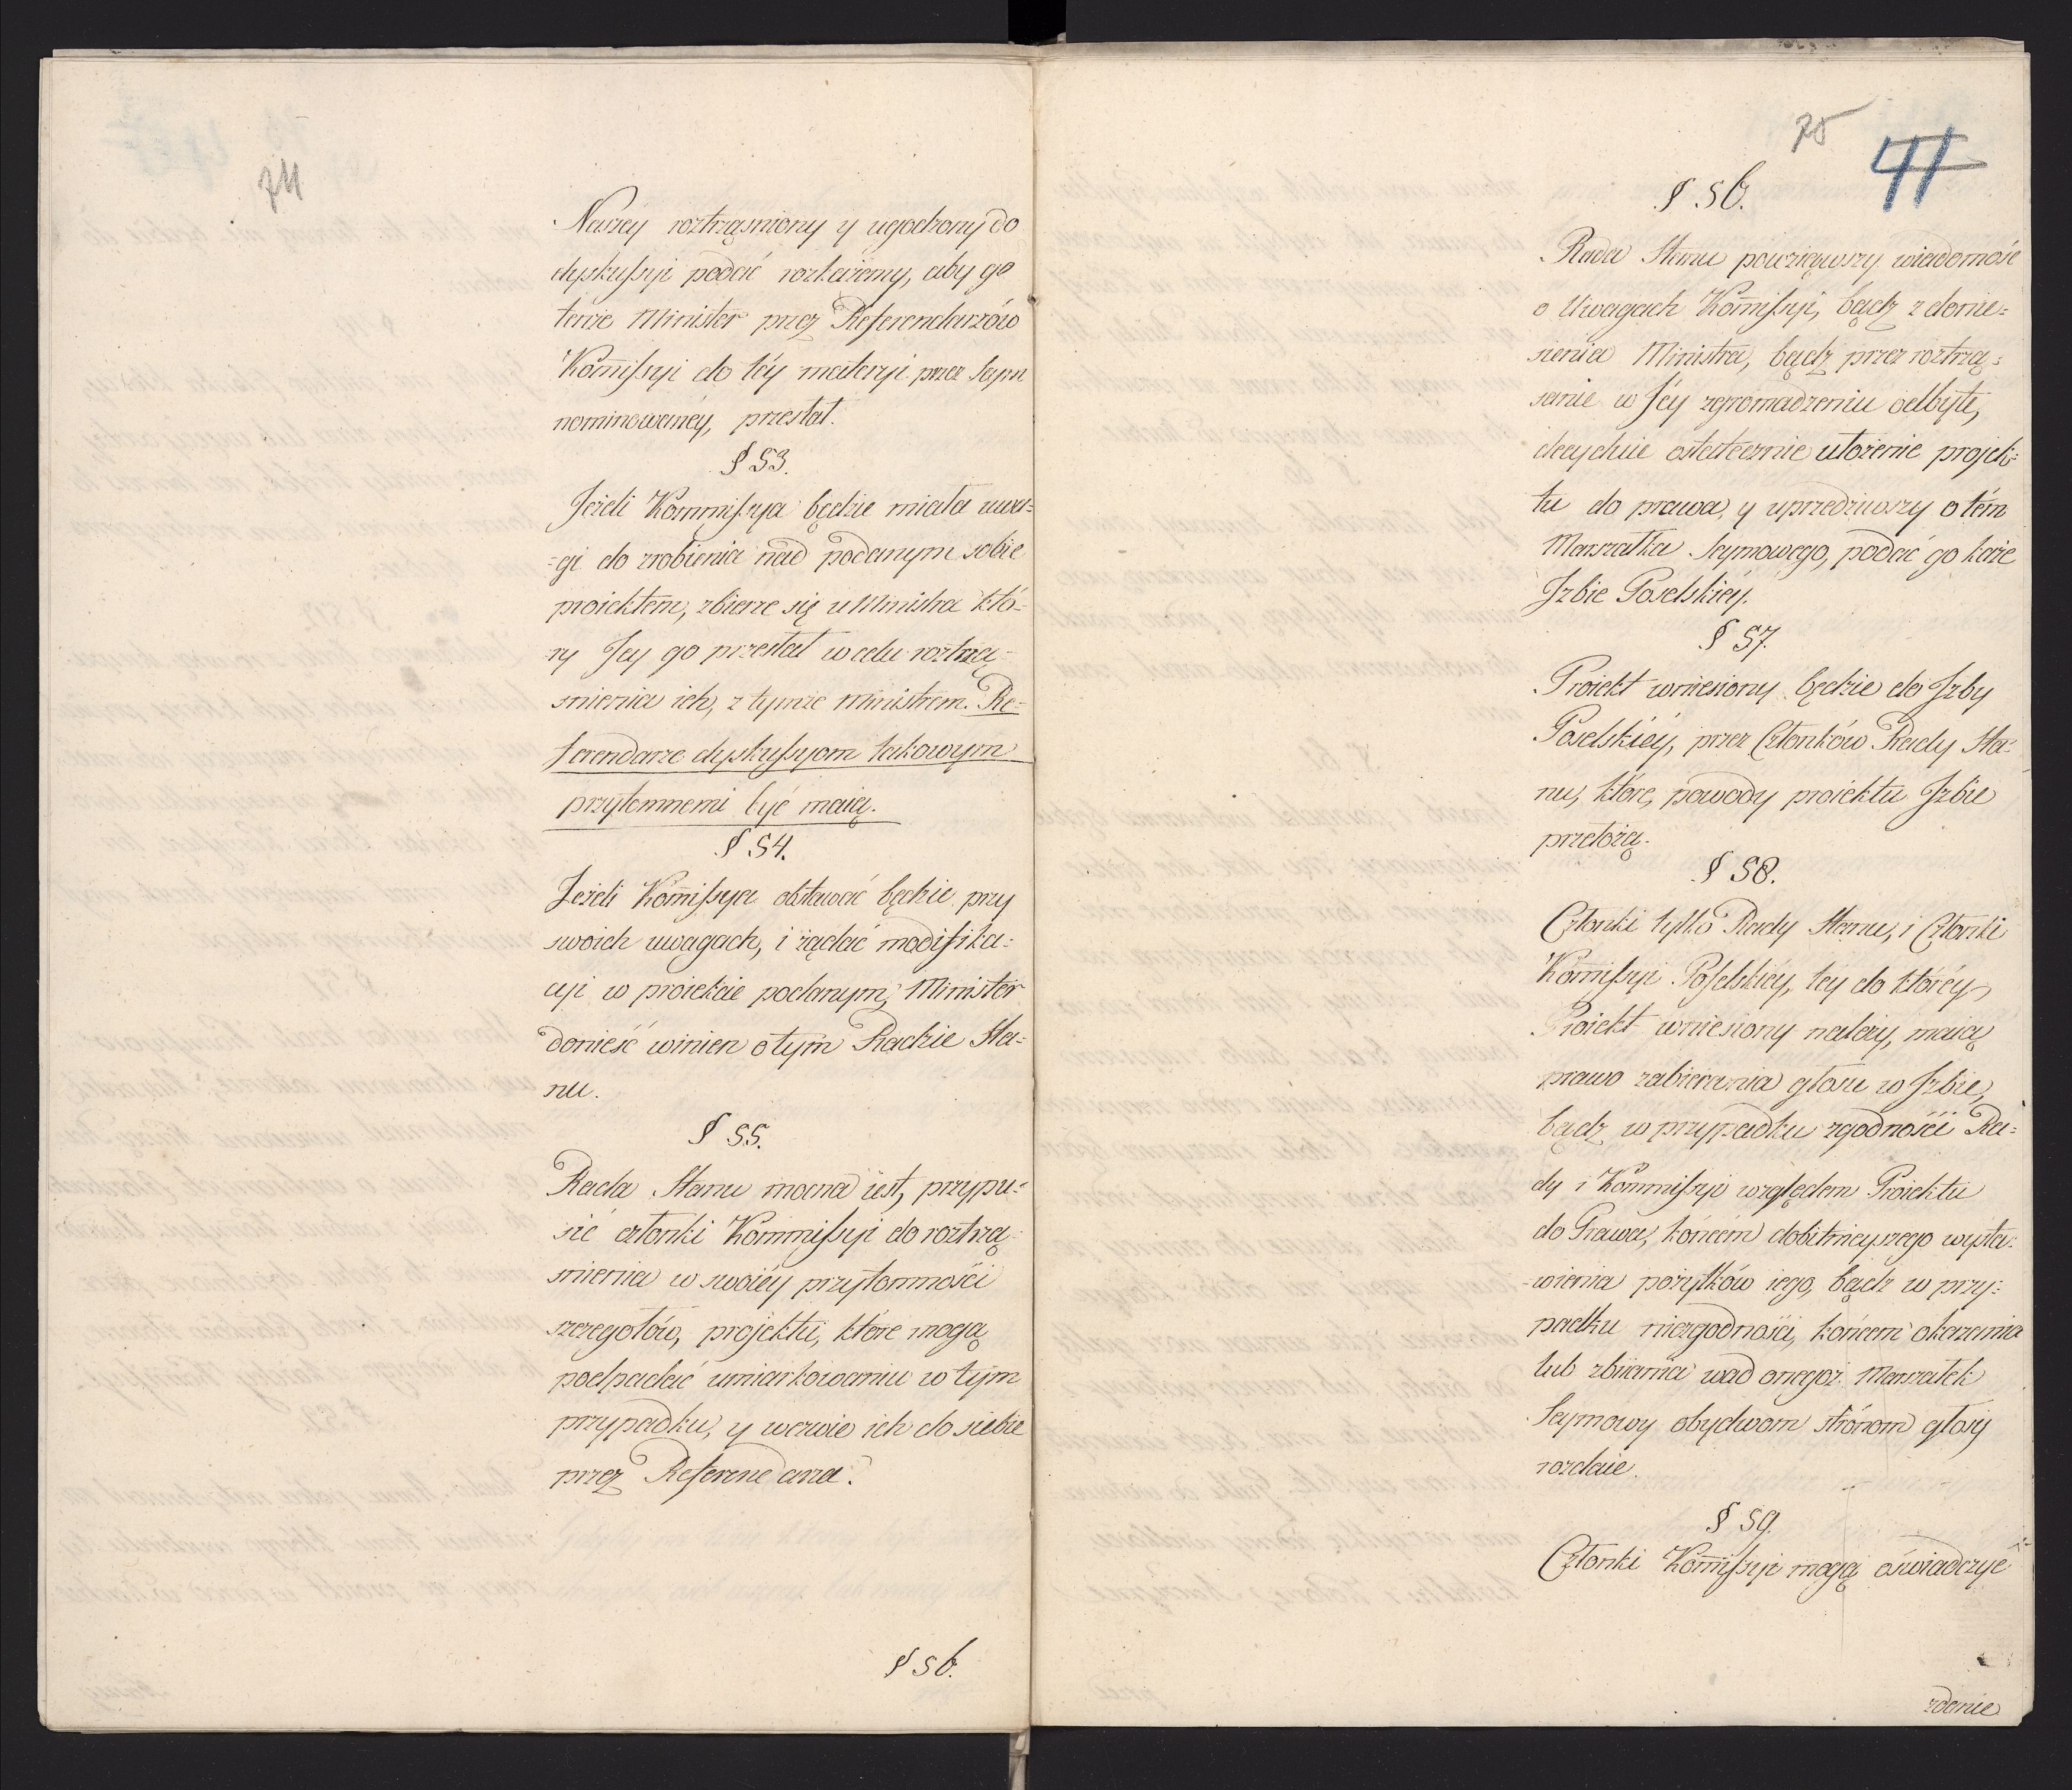 74
Naszéy roztrząśniony y ugodzony do
dyskussyi podać rozkażemy, aby go
tenże Minister przez Referendarzów
Kom̄issyi do téy materyi przez Seym
nominowanéy, przesłał.
§ 53.
Jeżeli Kommissya będzie miała uwa=
=gi do zrobienia nad podanym sobie
proiektem, zbierze się u Ministra któ=
ry Jey go przesłał w celu roztrzą=
śnienia ich, z tymże Ministrem. Re=
ferendarze dyskussyom takowym
przytomnemi być maią.
§ 54.
Jeżeli Kom̄issya obstawać będzie przy
swoich uwagach, i żądać modifika=
cyi w proiekcie podanym, Minister
donieść winien o tym Radzie Sta=
nu.
§ 55.
Rada Stanu mocna iest, przypu=
ścić członki Kommissyi do roztrzą=
śnienia w swoiéy przytomności
szczegołów, projektu, które mogą
podpadać umiarkowaniu w tym
przypadku, y wezwie ich do siebie
przez Referendarza.
§ 56.
75
41
§ 56.
Rada Stanu powziąwszy wiadomość
o Uwagach Kom̄issyi, bądz z donie=
sienia Ministra, bądz przez roztrzą=
sanie w Jéy zgromadzeniu odbyte,
decyduie ostatecznie ułożenie projek=
tu do prawa, y uprzedziwszy o tém
Marszałka Seymowego, podać go każe
Jzbie Poselskiéy.
§ 57.
Proiekt wniesiony będzie do Jzby
Poselskiéy, przez Członków Rady Sta=
nu, które, powody proiektu Jzbie
przełożą.
§ 58.
Członki tylko Rady Stanu, i Członki
Kom̄issyi Poselskiéy, tey do któréy
Proiekt wniesiony należy, maią
prawo zabierania głosu w Jzbie,
bądz w przypadku zgodności Ra=
dy i Kommissyi względem Proiektu
do Prawa, końcem dobitnieyszego wysta=
=wienia pożytków iego, bądz w przy=
padku niezgodności, końcem okazania
lub zbiiania wad onegoż. Marszałek
Seymowy obydwom strónom głosy
rozdaie.
§ 59.
Członki Kom̄issyi mogą oświadczyć
zdanie